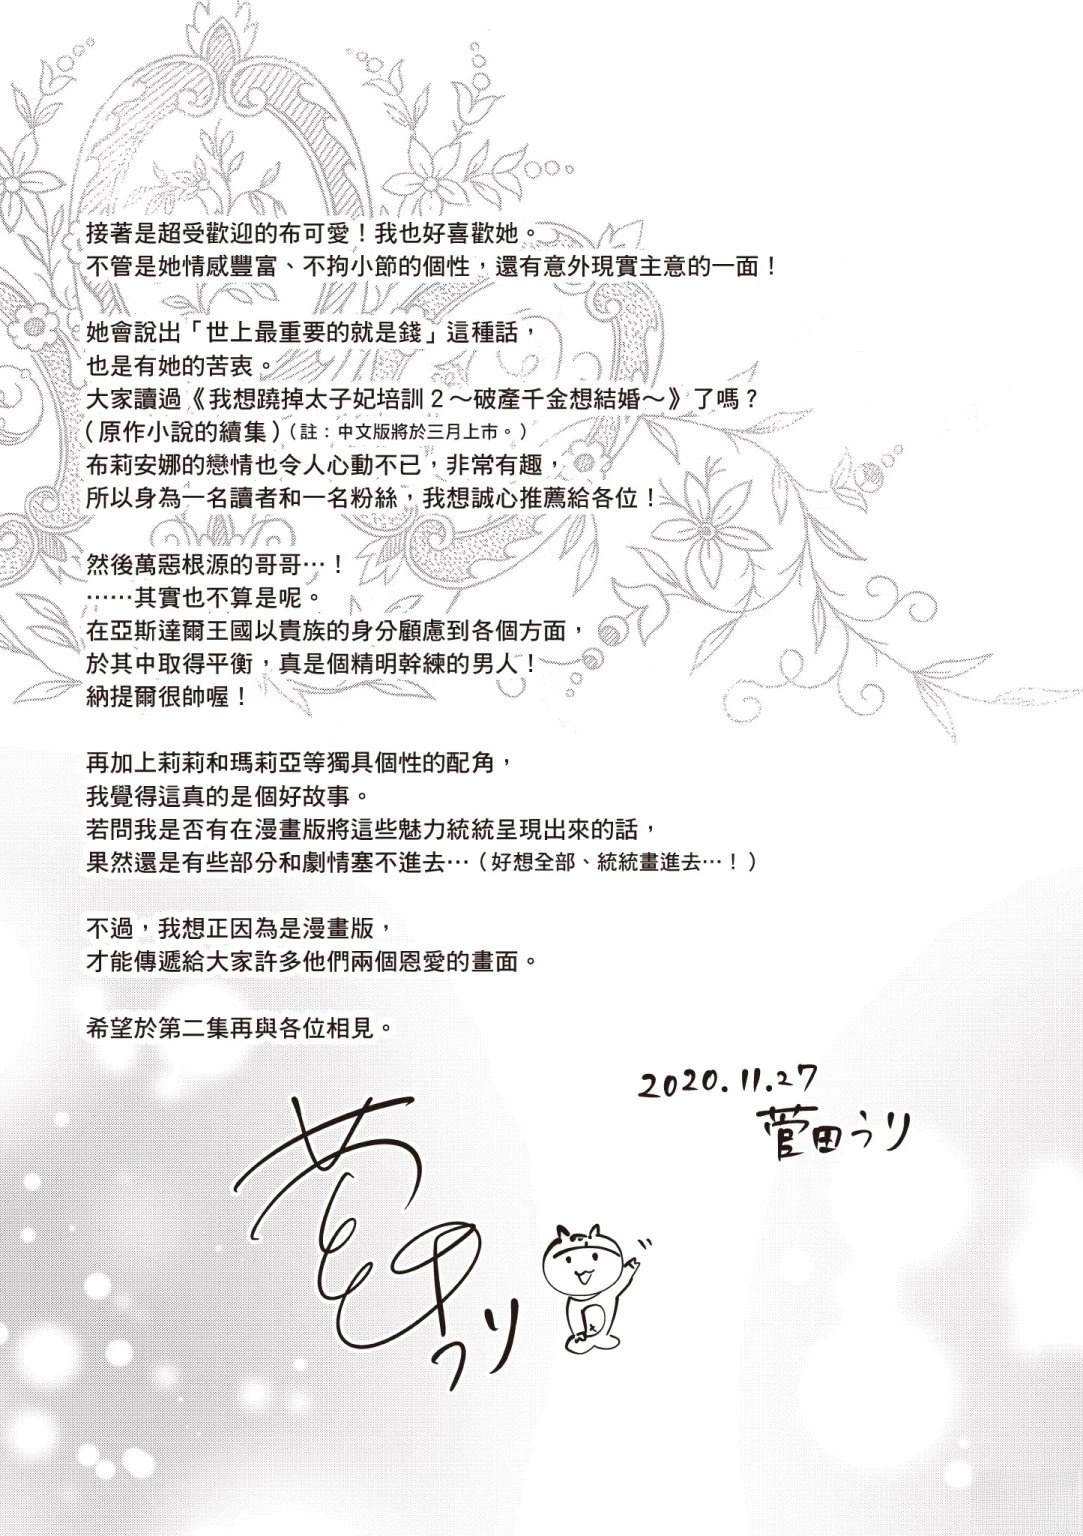 接著是超受歡迎的布可愛！我也好喜歡她。
不管是她情感豐富、不拘小節的個性，還有意外現實主意的一面！
她會說出「世上最重要的就是錢」這種話，
也是有她的苦衷。
大家讀過《我想蹺掉太子妃培訓２～破產千金想結婚～》了嗎？
（原作小說的續集）（註：中文版將於三月上市。）
布莉安娜的戀情也令人心動不已，非常有趣，
所以身為一名讀者和一名粉絲，我想誠心推薦給各位！
然後萬惡根源的哥哥…！
……其實也不算是呢。
在亞斯達爾王國以貴族的身分顧慮到各個方面，
於其中取得平衡，真是個精明幹練的男人！
納提爾很帥喔！
再加上莉莉和瑪莉亞等獨具個性的配角，
我覺得這真的是個好故事。
若問我是否有在漫畫版將這些魅力統統呈現出來的話，
果然還是有些部分和劇情塞不進去…（好想全部、統統畫進去…！）
不過，我想正因為是漫畫版，
才能傳遞給大家許多他們兩個恩愛的畫面。
希望於第二集再與各位相見。
2020.11.27
菅田うり
菅田うり